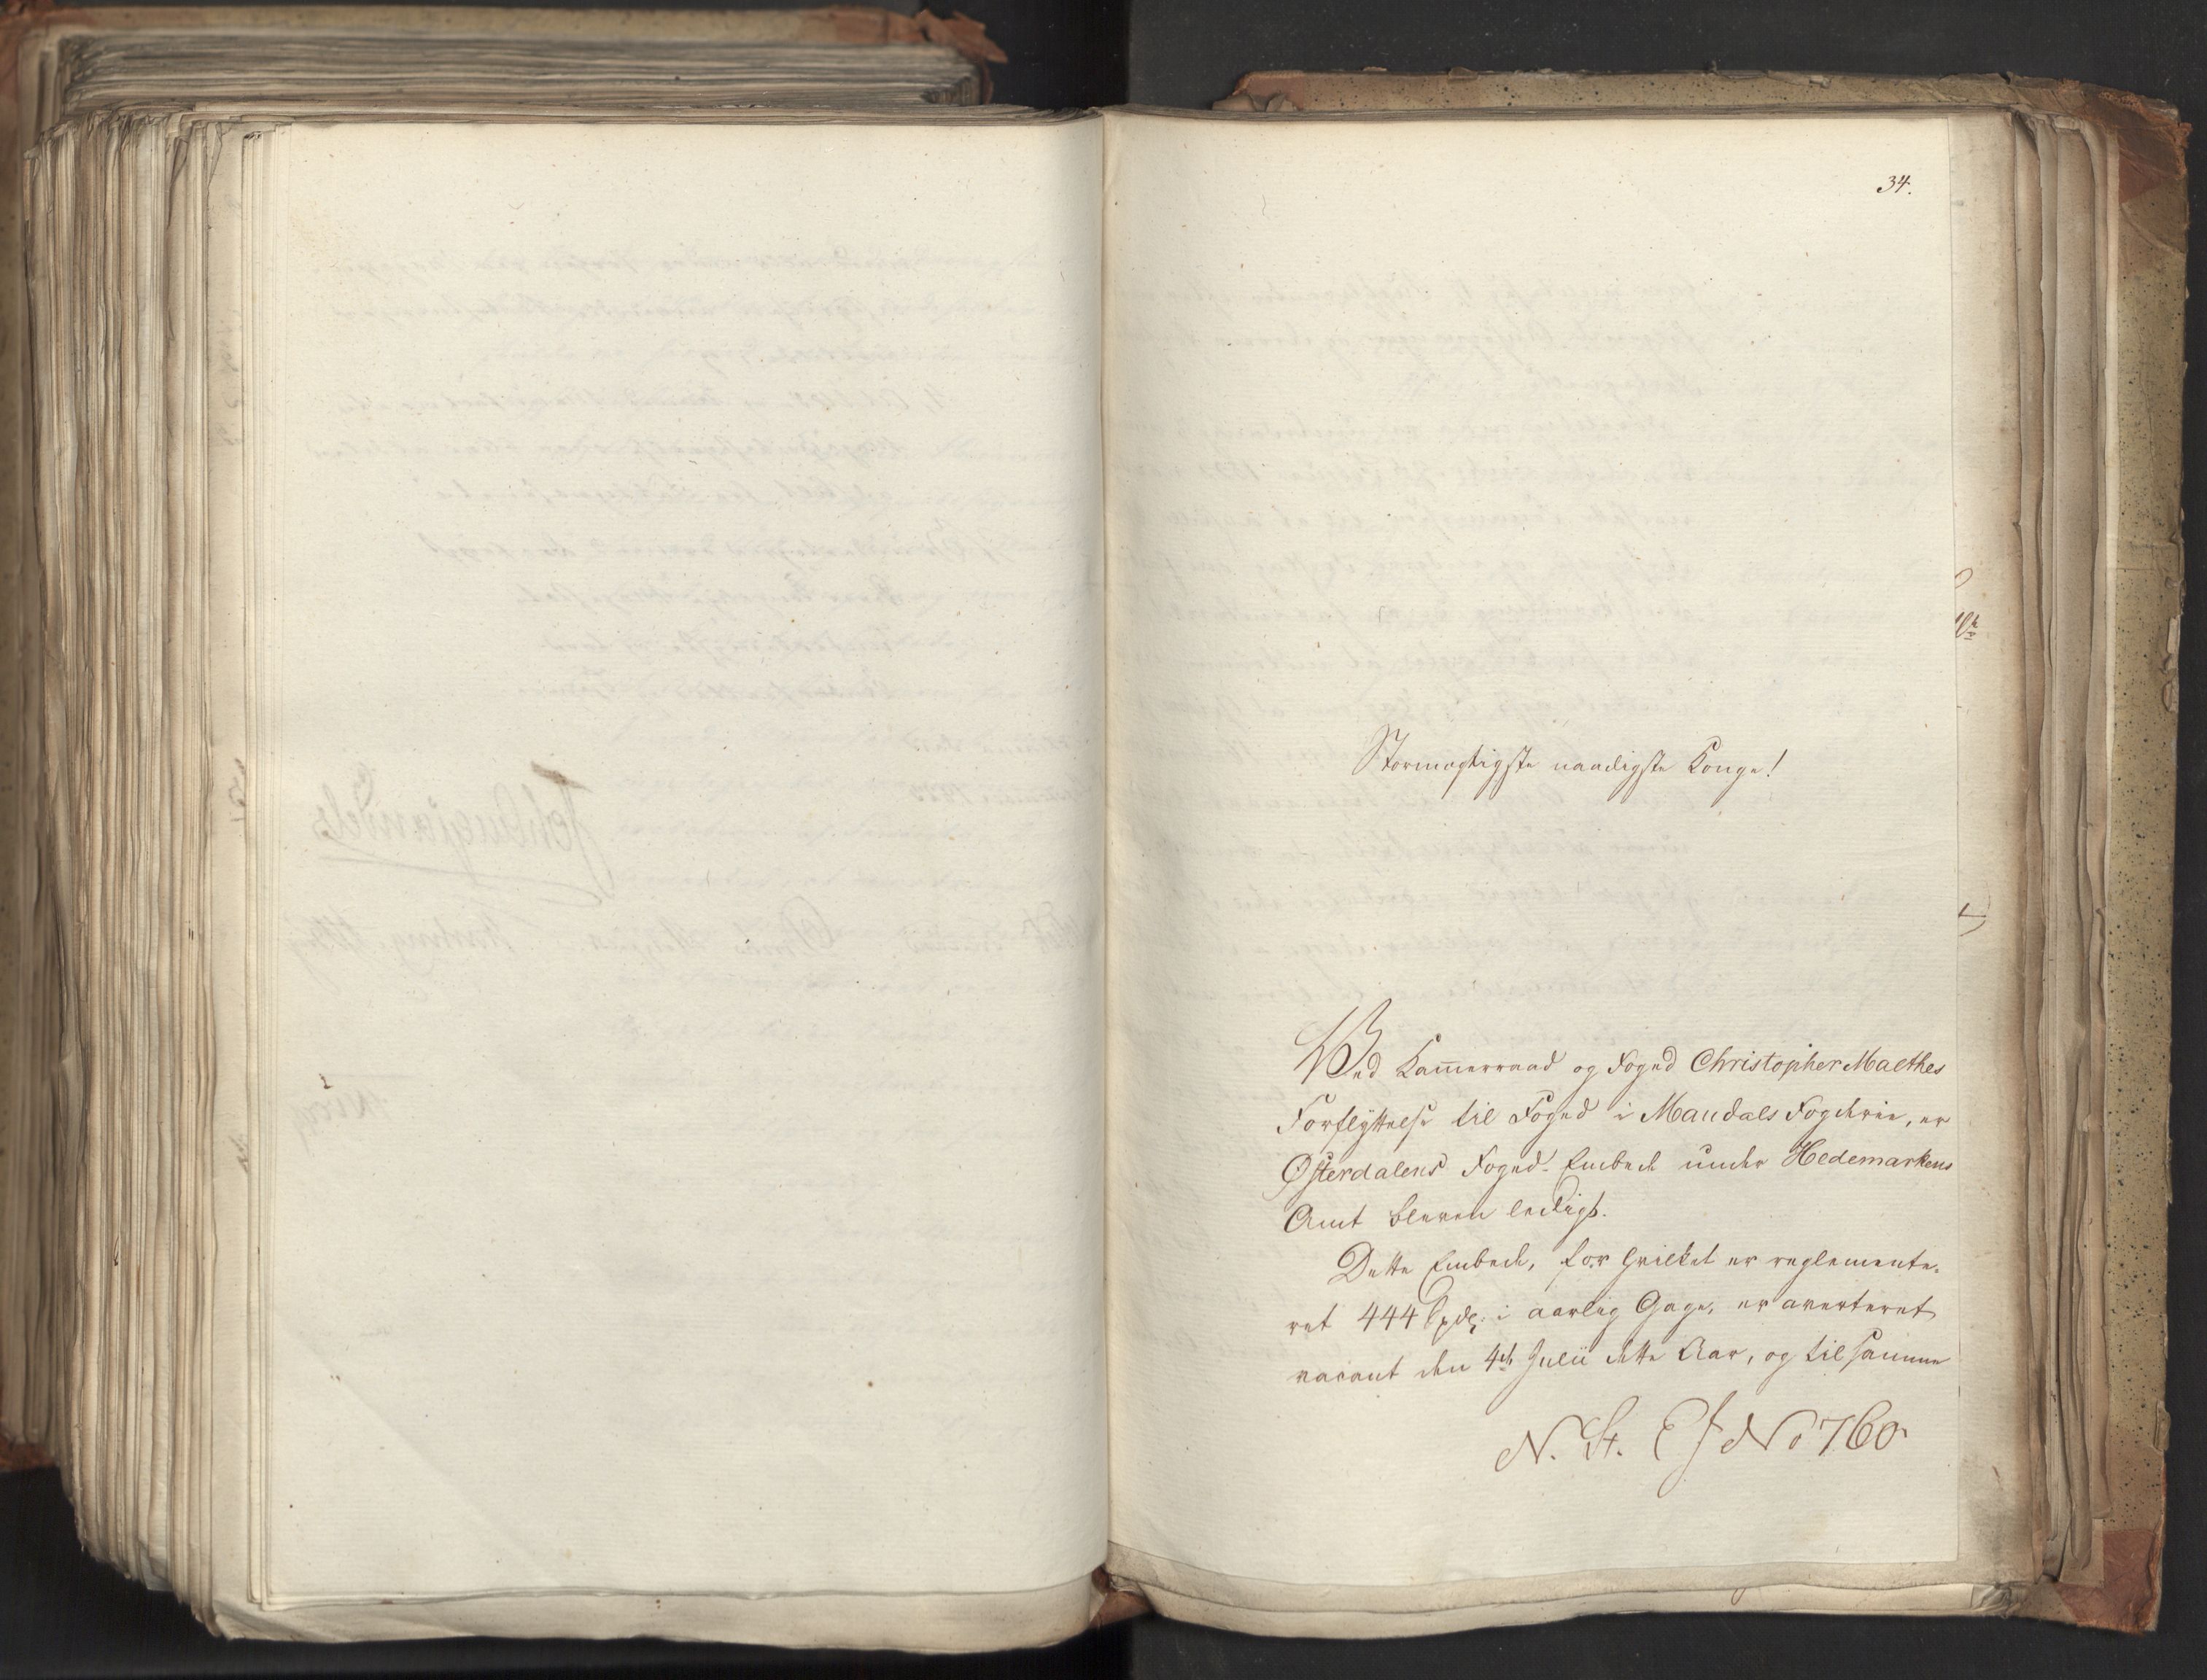 34.
Stormægtigste naadigste Konge!
Ved Kam̄erraad og Foged Christopher Maethes
Forflyttelse til Foged i Mandals Fogderie, er
Østerdalens Foged-Embede under Hedemarkens
Amt bleven ledigt.
Dette Embede, for hvilket er reglemente-
ret 444 Spd. i aarlig Gage, er averteret
vacant den 4de Julii dette Aar, og til samme
N. St. E J No 760